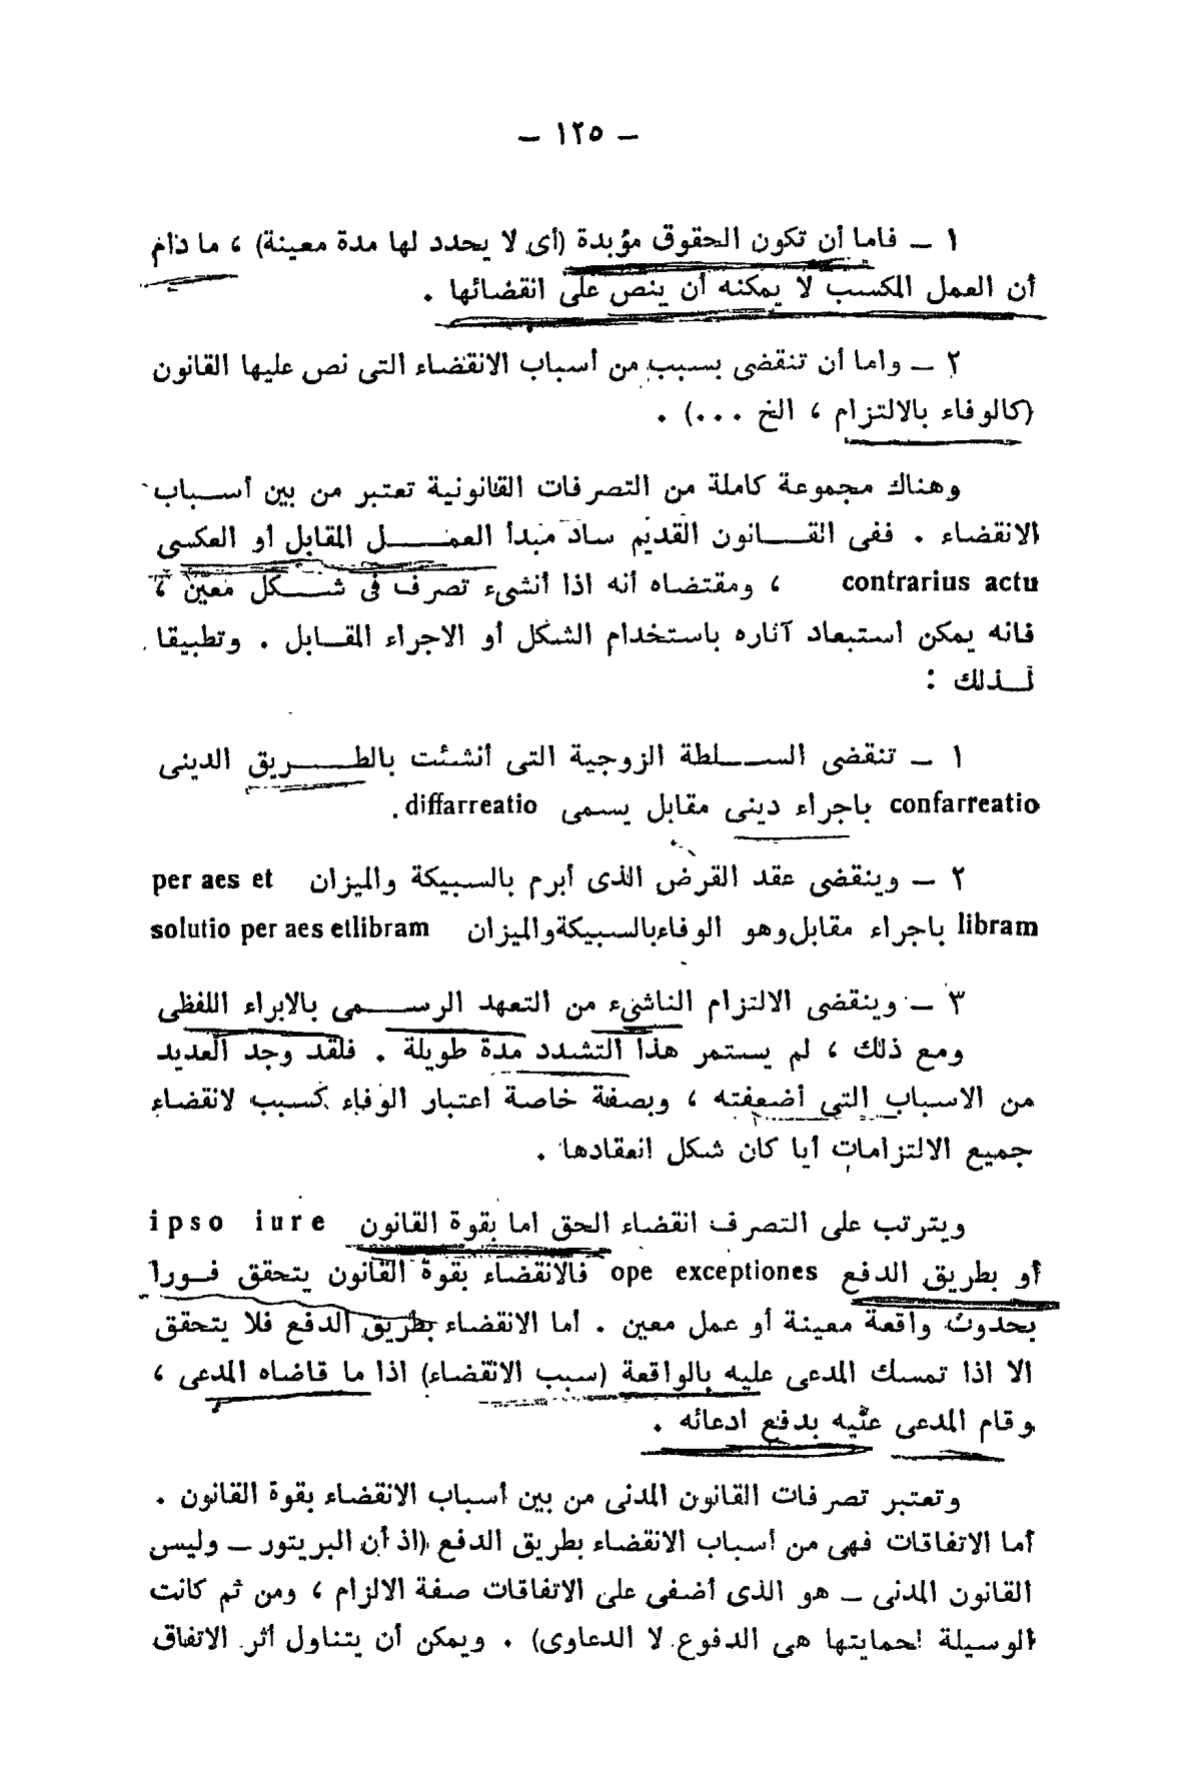 – ١٢٥ –
١ – فاما أن تكون الحقوق مؤبدة (أى لا يحدد لها مدة معينة) ، ما دام
أن العمل المكسب لا يمكنه أن ينص على انقضائها .
٢ – واما أن تنقضى بسبب من أسباب الانقضاء التى نص عليها القانون
(كالوفاء بالالتزام ، الخ ...) .
وهناك مجموعة كاملة من التصرفات القانونية تعتبر من بين أسباب
الانقضاء . ففى القانون القديم ساد مبدأ العمل المقابل أو العكسى
contrarius actu ، ومقتضاه أنه اذا أنشىء تصرف فى شكل معين ،
فانه يمكن استبعاد آثاره باستخدام الشكل أو الاجراء المقابل . وتطبيقا
لذلك :
١ – تنقضى السلطة الزوجية التى أنشئت بالطريق الدينى
confarreatio باجراء دينى مقابل يسمى diffarreatio.
٢ – وينقضى عقد القرض الذى أبرم بالسبيكة والميزان per aes et
libram باجراء مقابل وهو الوفاء بالسبيكة والميزان solutio per aes etlibram
٣ – وينقضى الالتزام الناشىء من التعهد الرسمى بالابراء اللفظى
ومع ذلك ، لم يستمر هذا التشدد مدة طويلة . فلقد وجد العديد
من الاسباب التى أضعفته ، وبصفة خاصة اعتبار الوفاء كسبب لانقضاء
جميع الالتزامات أيا كان شكل انعقادها .
ويترتب على التصرف انقضاء الحق اما بقوة القانون ipso iure
أو بطريق الدفع ope exceptiones فالانقضاء بقوة القانون يتحقق فورا
بحدوث واقعة معينة أو عمل معين . أما الانقضاء بطريق الدفع فلا يتحقق
الا اذا تمسك المدعى عليه بالواقعة (سبب الانقضاء) اذا ما قاضاه المدعى ،
وقام المدعى عليه بدفع ادعائه .
وتعتبر تصرفات القانون المدنى من بين أسباب الانقضاء بقوة القانون .
أما الاتفاقات فهى من أسباب الانقضاء بطريق الدفع (اذ أن البريتور – وليس
القانون المدنى – هو الذى أضفى على الاتفاقات صفة الالزام ، ومن ثم كانت
الوسيلة لحمايتها هى الدفوع لا الدعاوى) . ويمكن أن يتناول أثر الاتفاق